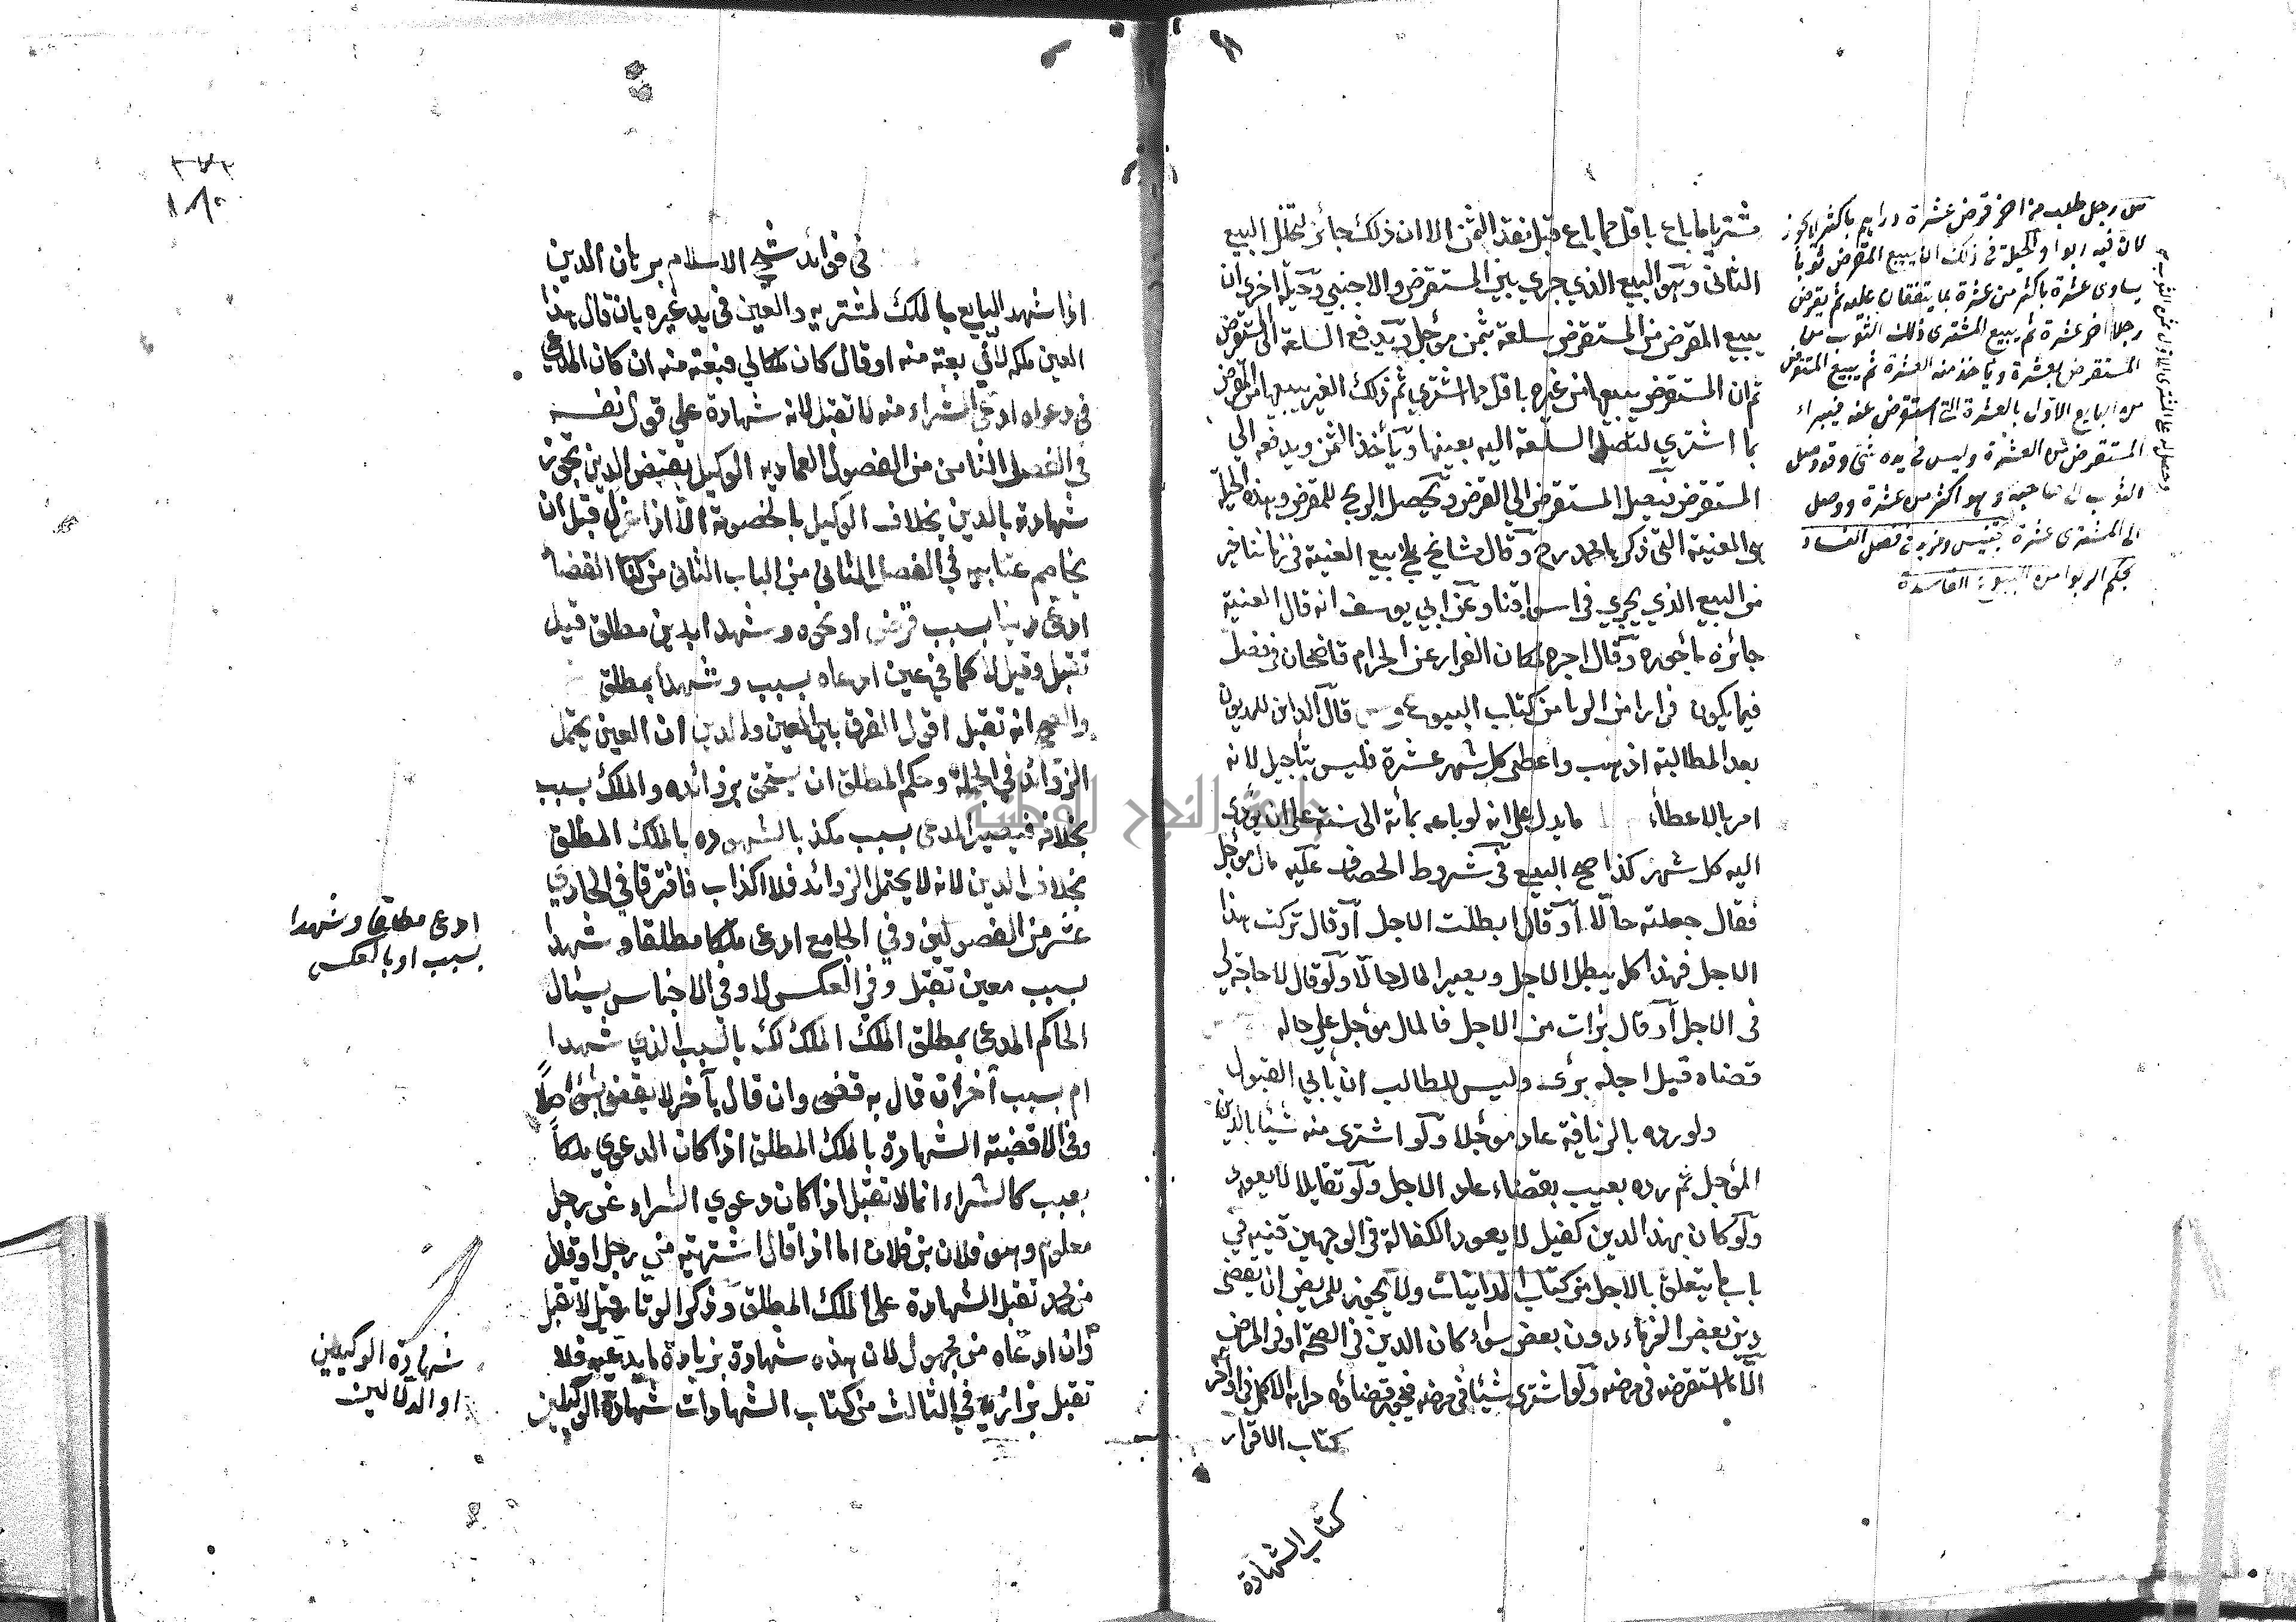 مشتريا ما باع باقل مما باع قبل نقد الثمن الا ان ذلك جائز لتخلل البيع
الثاني وهو البيع الذي جرى بين المستقرض والاجنبي وحيلة اخرى ان
يبيع المقرض من المستقرض سلعة بثمن مؤجل ويدفع السلعة الى المستقرض
ثم ان المستقرض يبيعها من غيره باقل مما اشتري ثم ذلك الغير يبيعها من المقرض
بما اشتري لتصل السلعة اليه بعينها ويأخذ الثمن ويدفعه الي
المستقرض فيصل المستقرض الي القرض ويحصل الربح للمقرض وهذه الحيلة
هي العنية التي ذكرها محمد رح وقال مشايخ بلخ بيع العنية في زماننا خير
من البيع الذي يجري في اسواقنا وعن ابي يوسف انه قال العنية
جائزه مأجوره وقال اجره لمكان الفرار عن الحرام قاضخان في فصل
فيما يكون فرارا من الربا من كتاب البيوع قال الداين للمديون
بعد المطالبة اذهب واعطي كل شهر عشرة فليس بتأجيل لانه
امر بالاعطاء ما يدل على انه لو باعه بمائة الى سنة على ان يؤدى
اليه كل شهر كذا صح البيع في شروط الخصاف عليه مال مؤجل
فقال جعلته حالا أو قال ابطلت الاجل أو قال تركت هذا
الاجل فهذا كله يبطل الاجل ويصير المال حالا ولو قال لا حاجة لي
في الاجل أو قال برأت من الاجل فالمال مؤجل على حاله
قضاه قبل اجله برئ وليس للطالب ان يأبي القبول
ولو رده بالزيافة عاد مؤجلا ولو اشترى منه شيئا بالدين
المؤجل ثم رده بعيب بقضاء عاد الاجل ولو تقايلا لا يعود
ولو كان بهذا الدين كفيل لا يعود الكفالة في الوجهين قنيه في
باب ما يتعلق بالاجل من كتاب المداينات ولا يجوز للمريض ان يقضى
دين بعض الغرماء دون بعض سواء كان الدين في الصحة او في المرض
الا ما استقرضه في مرضه ولو اشترى شيئا في مرضه فيجوز قضاؤه خزانة الاكمل في اواخر
كتاب الاقرار
كتاب الشهادة
رجل طلب من اخر قرض عشرة دراهم باكثر لا يجوز
لان فيه ربوا والحيلة في ذلك ان يبيع المقرض ثوبا
يساوى عشرة باكثر من عشرة بما يتفقان عليه ثم يقرض
رجلا اخر عشرة ثم يبيع المشترى ذلك الثوب من
المستقرض بعشرة وياخذ منه العشرة ثم يبيع المستقرض
من البايع الاول بالعشرة التي استقرض عنه فيبراء
المستقرض من العشرة وليس في يده شئ وقد وصل
الثوب الى صاحبه وهو اكثر من عشرة ووصل
الى المشترى عشرة
بحكم الربوا من البيوع الفاسدة
في فوائد شيخ الاسلام برهان الدين
اذا شهد البايع بالملك لمشتريه والعين في يد غيره بان قال هذا
العين ملكه لاني بعته منه او قال كان ملكا لي فبعته منه ان كان المدعي
في دعواه ادعى الشراء منه لا تقبل لانه شهادة علي قول نفسه
في الفصل الثامن من الفصول العماديه الوكيل بقبض الدين تجوز
شهادته بالدين بخلاف الوكيل بالخصومة الا اذا عزل قبل ان
يخاصم عتابيه في الفصل الثاني من الباب الثاني من كتاب القضا
ادعى دينا بسبب قرض او نحوه وشهدا بدين مطلق قيل
تقبل وقيل لا كما في عين ادعاه بسبب وشهدا بمطلق
والصحيح انه تقبل اقول الفرق بين العين والدين ان العين يحتمل
الزوائد في الجملة وحكم المطلق ان يستحق بزوائده والملك بسبب
بخلافه فيصير المدعي بسبب مكذبا لشهوده بالملك المطلق
بخلاف الدين لانه لا يحتمل الزوائد فلا اكذاب فافترقا في الحادي
عشر من الفصولين وفي الجامع ادعى ملكا مطلقا وشهدا
بسبب معين تقبل وفي العكس لا وفي الاجناس يسأل
الحاكم المدعي بمطلق الملك الملك لك بالسبب الذي شهدا
ام بسبب آخر ان قال به قضى وان قال بآخر لا يقضى بشئ اصلا
وفي الاقضية الشهادة بالملك المطلق اذا كان الدعوي ملكا
بسبب كالشراء انما لا تقبل اذا كان دعوي الشراء عن رجل
معلوم وهو فلان بن فلان اما اذا قال اشتريته من رجل او قال
من محمد تقبل الشهادة على الملك المطلق وذكر الوتار قيل لا تقبل
وان ادعاه من مجهول لان هذه شهادة بزيادة ما يدعيه فلا
تقبل بزازيه في الثالث من كتاب الشهادات شهادة الوكيلين
ادعى مطلقا وشهدا
بسبب او بالعكس
شهادة الوكيلين
او الدلالين
جامعة النجاح الوطنية